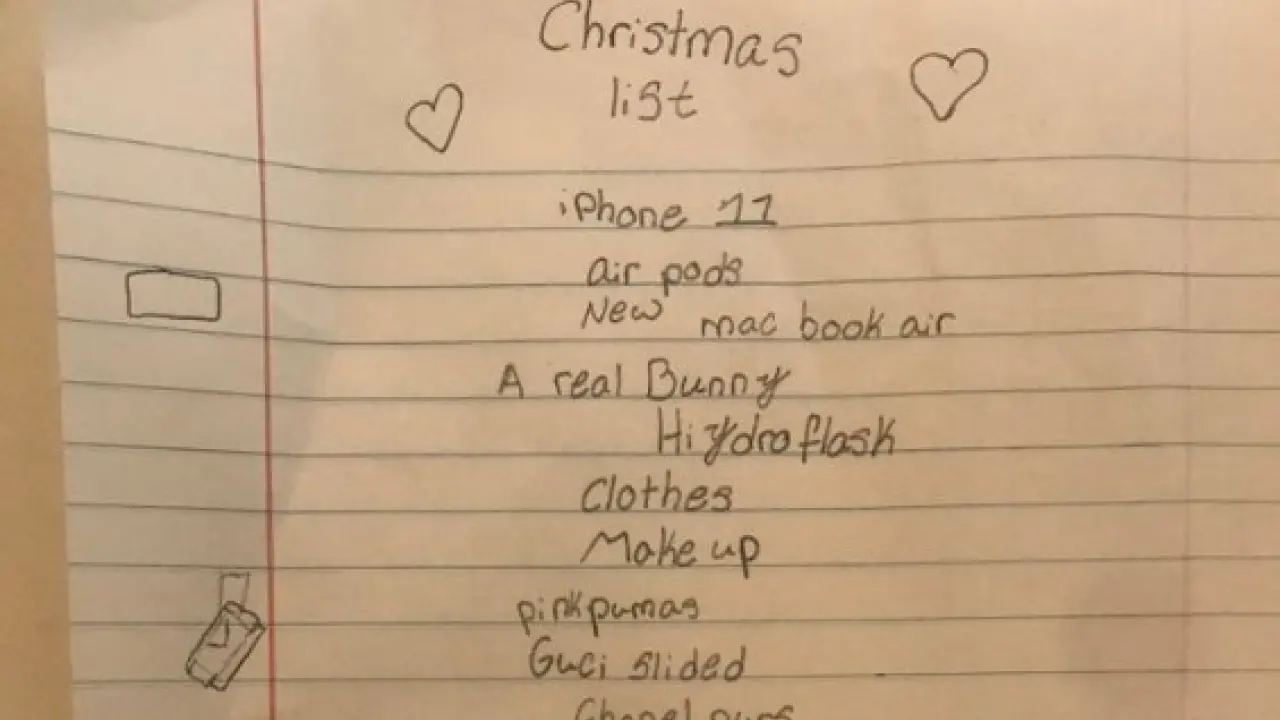 Christmas
list
iPhone 11
air pods
New mac book air
A real Bunny
Hiydroflask
Clothes
Make up
pink pumas
Guci slided
Chanel purs